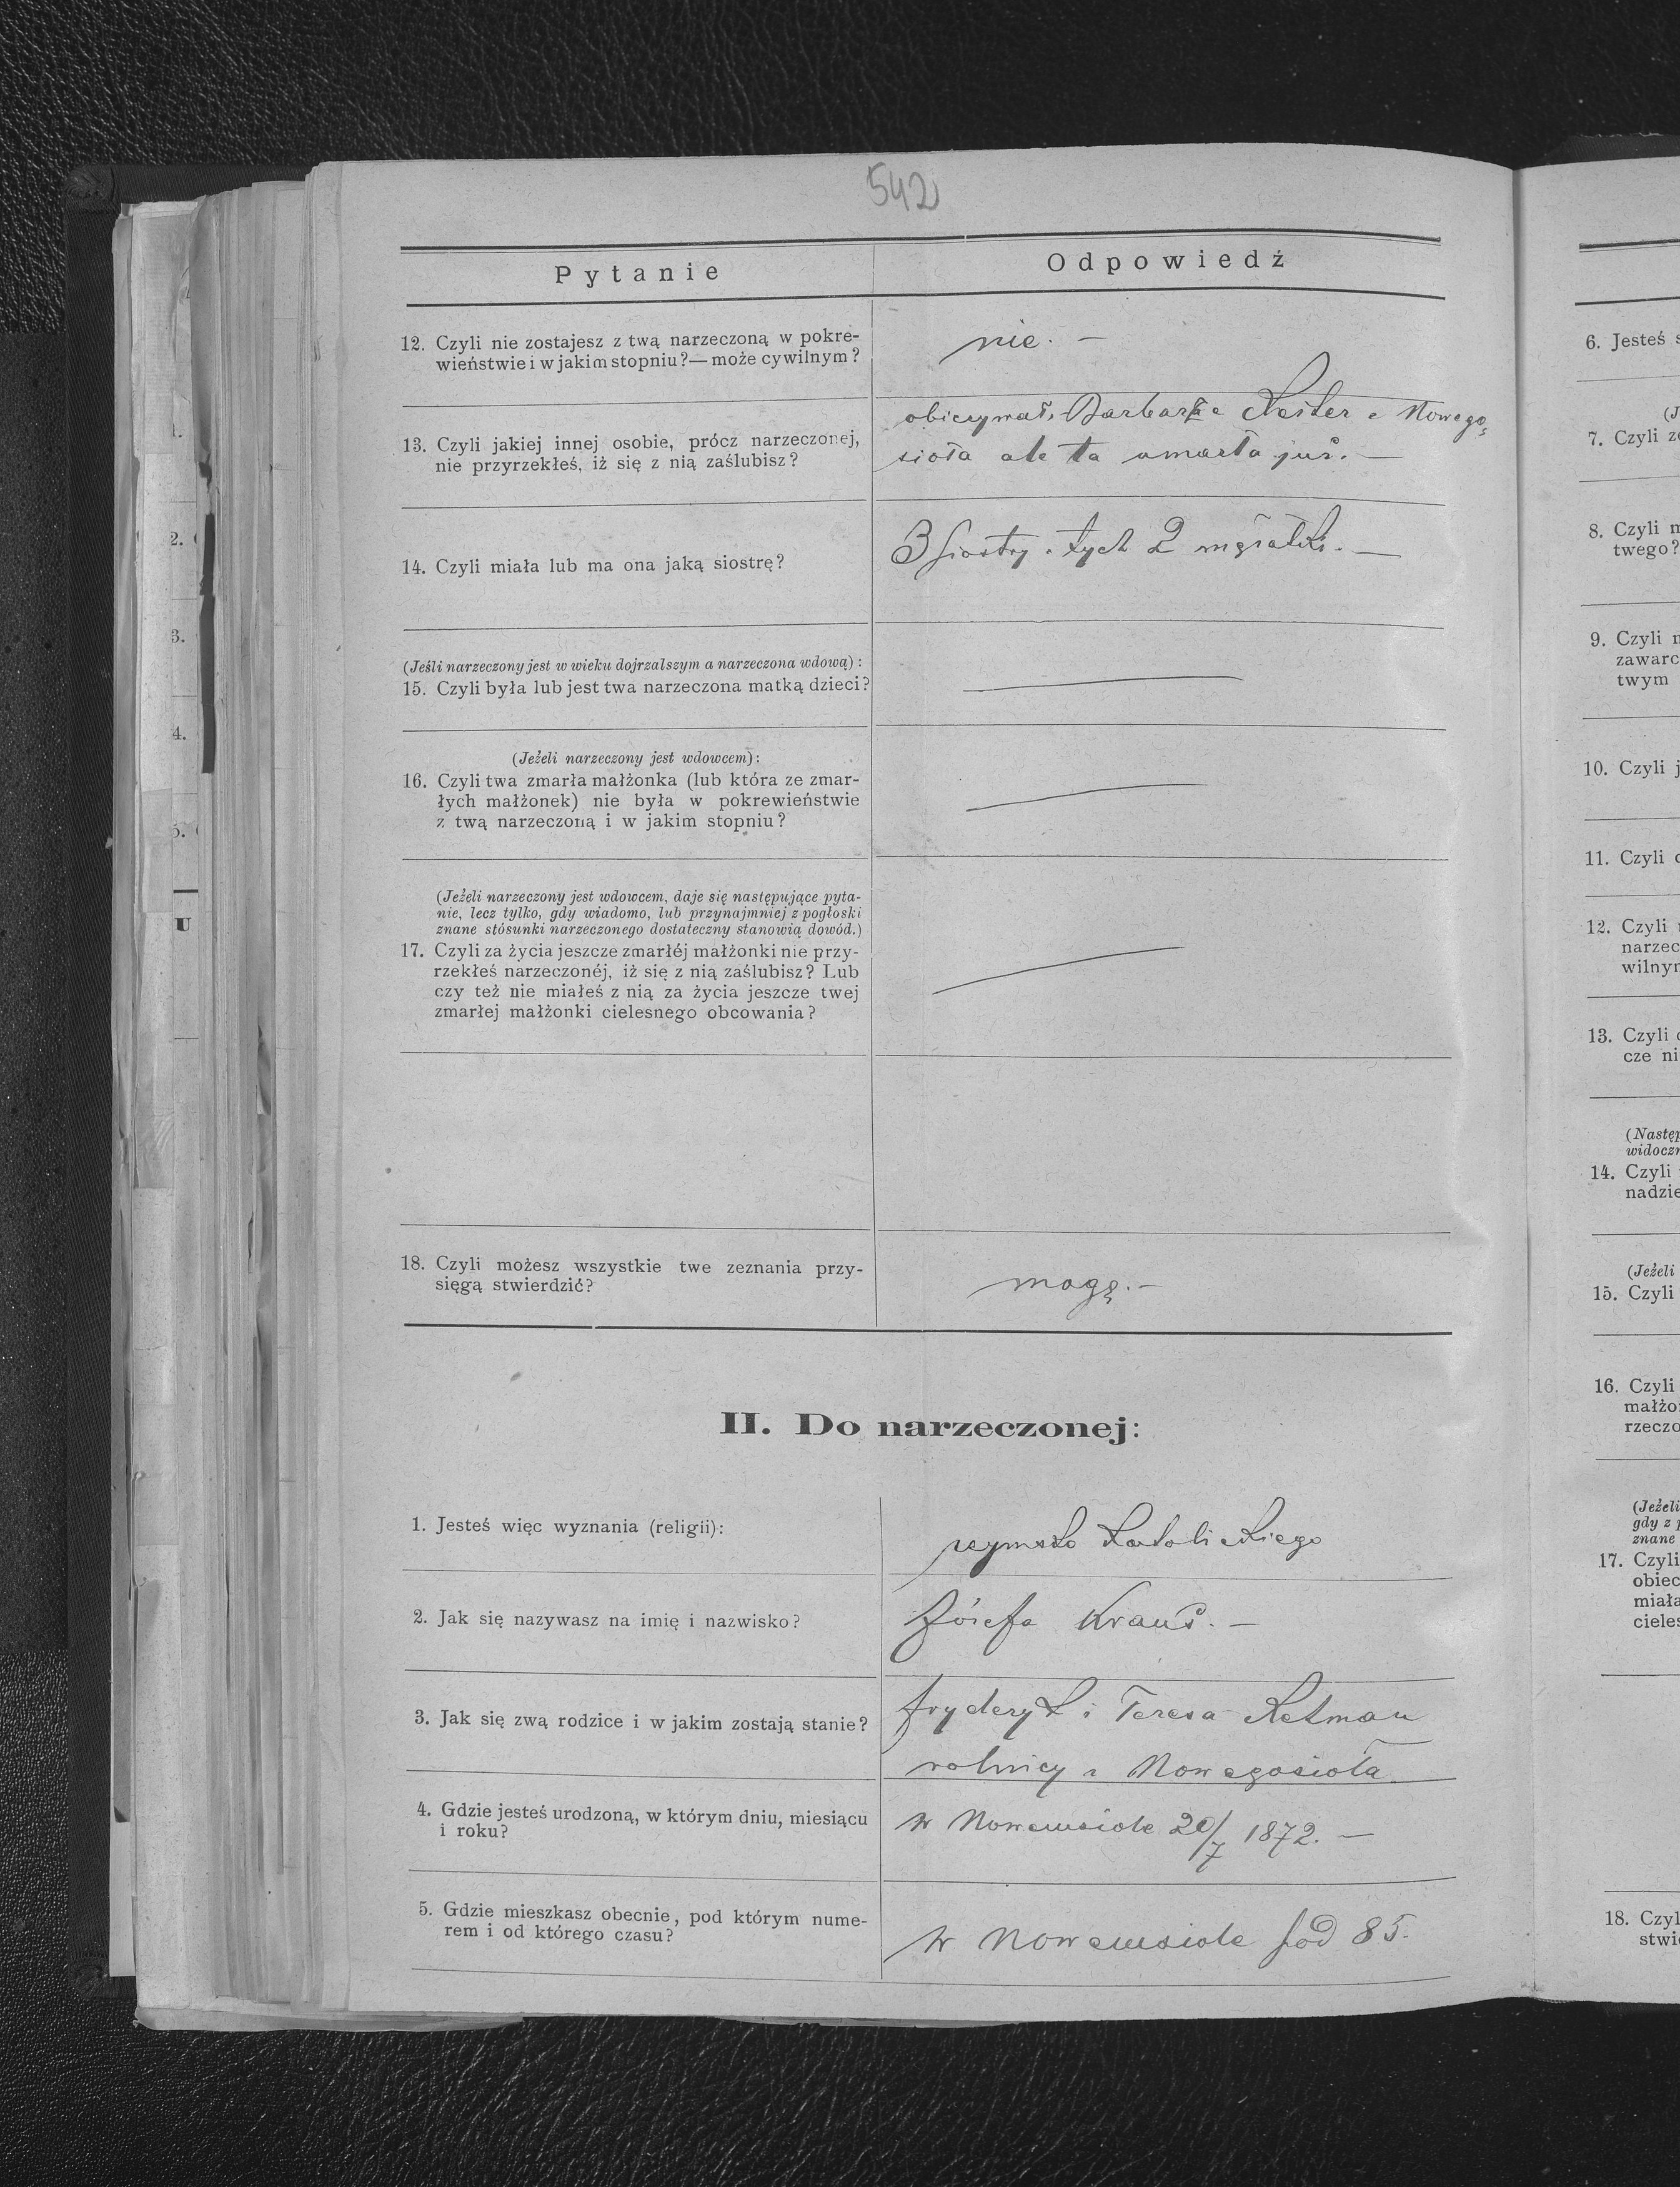 542
Pytanie
Odpowiedź
12. Czyli nie zostajesz z twą narzeczoną w pokre-
wieństwie i w jakim stopniu?—może cywilnym?
nie. —
13. Czyli jakiej innej osobie, prócz narzeczonej,
nie przyrzekłeś, iż się z nią zaślubisz?
obiecywał, Barbarze z Nowego
sioła ale ta umarła już. —
14. Czyli miała lub ma ona jaką siostrę?
3 siostry z tych 2 mężatki. —
(Jeśli narzeczony jest w wieku dojrzalszym a narzeczona wdową):
15. Czyli była lub jest twa narzeczona matką dzieci?
(Jeżeli narzeczony jest wdowcem):
16. Czyli twa zmarła małżonka (lub która ze zmar-
łych małżonek) nie była w pokrewieństwie
z twą narzeczoną i w jakim stopniu?
(Jeżeli narzeczony jest wdowcem, daje się następujące pyta-
nie, lecz tylko, gdy wiadomo, lub przynajmniej z pogłoski
znane stósunki narzeczonego dostateczny stanowią dowód.)
17. Czyli za życia jeszcze zmarłéj małżonki nie przy-
rzekłeś narzeczonéj, iż się z nią zaślubisz? Lub
czy też nie miałeś z nią za życia jeszcze twej
zmarłej małżonki cielesnego obcowania?
18. Czyli możesz wszystkie twe zeznania przy-
sięgą stwierdzić?
mogę. —
II. Do narzeczonej:
1. Jesteś więc wyznania (religii):
rzymsko katolickiego
2. Jak się nazywasz na imię i nazwisko?
Józefa Kraus. —
3. Jak się zwą rodzice i w jakim zostają stanie?
Fryderyk i Teresa Retman
rolnicy z Nowegosioła
4. Gdzie jesteś urodzoną, w którym dniu, miesiącu
i roku?
w Nowemsiole 20/7 1872. —
5. Gdzie mieszkasz obecnie, pod którym nume-
rem i od którego czasu?
w Nowemsiole pod 85.
1.
2.
3.
4.
5.
U
6. Jesteś
7. Czyli
8. Czyli
twego?
9. Czyli
zawarc
twym
10. Czyli
11. Czyli
12. Czyli
narzec
wilnyn
13. Czyli
cze ni
(Następ
widoczn
14. Czyli
nadzie
(Jeżeli
15. Czyli
16. Czyli
małżo
rzeczo
(Jeżeli
gdy z
znane
17. Czyli
obiec
miała
cieles
18. Czyl
stwi